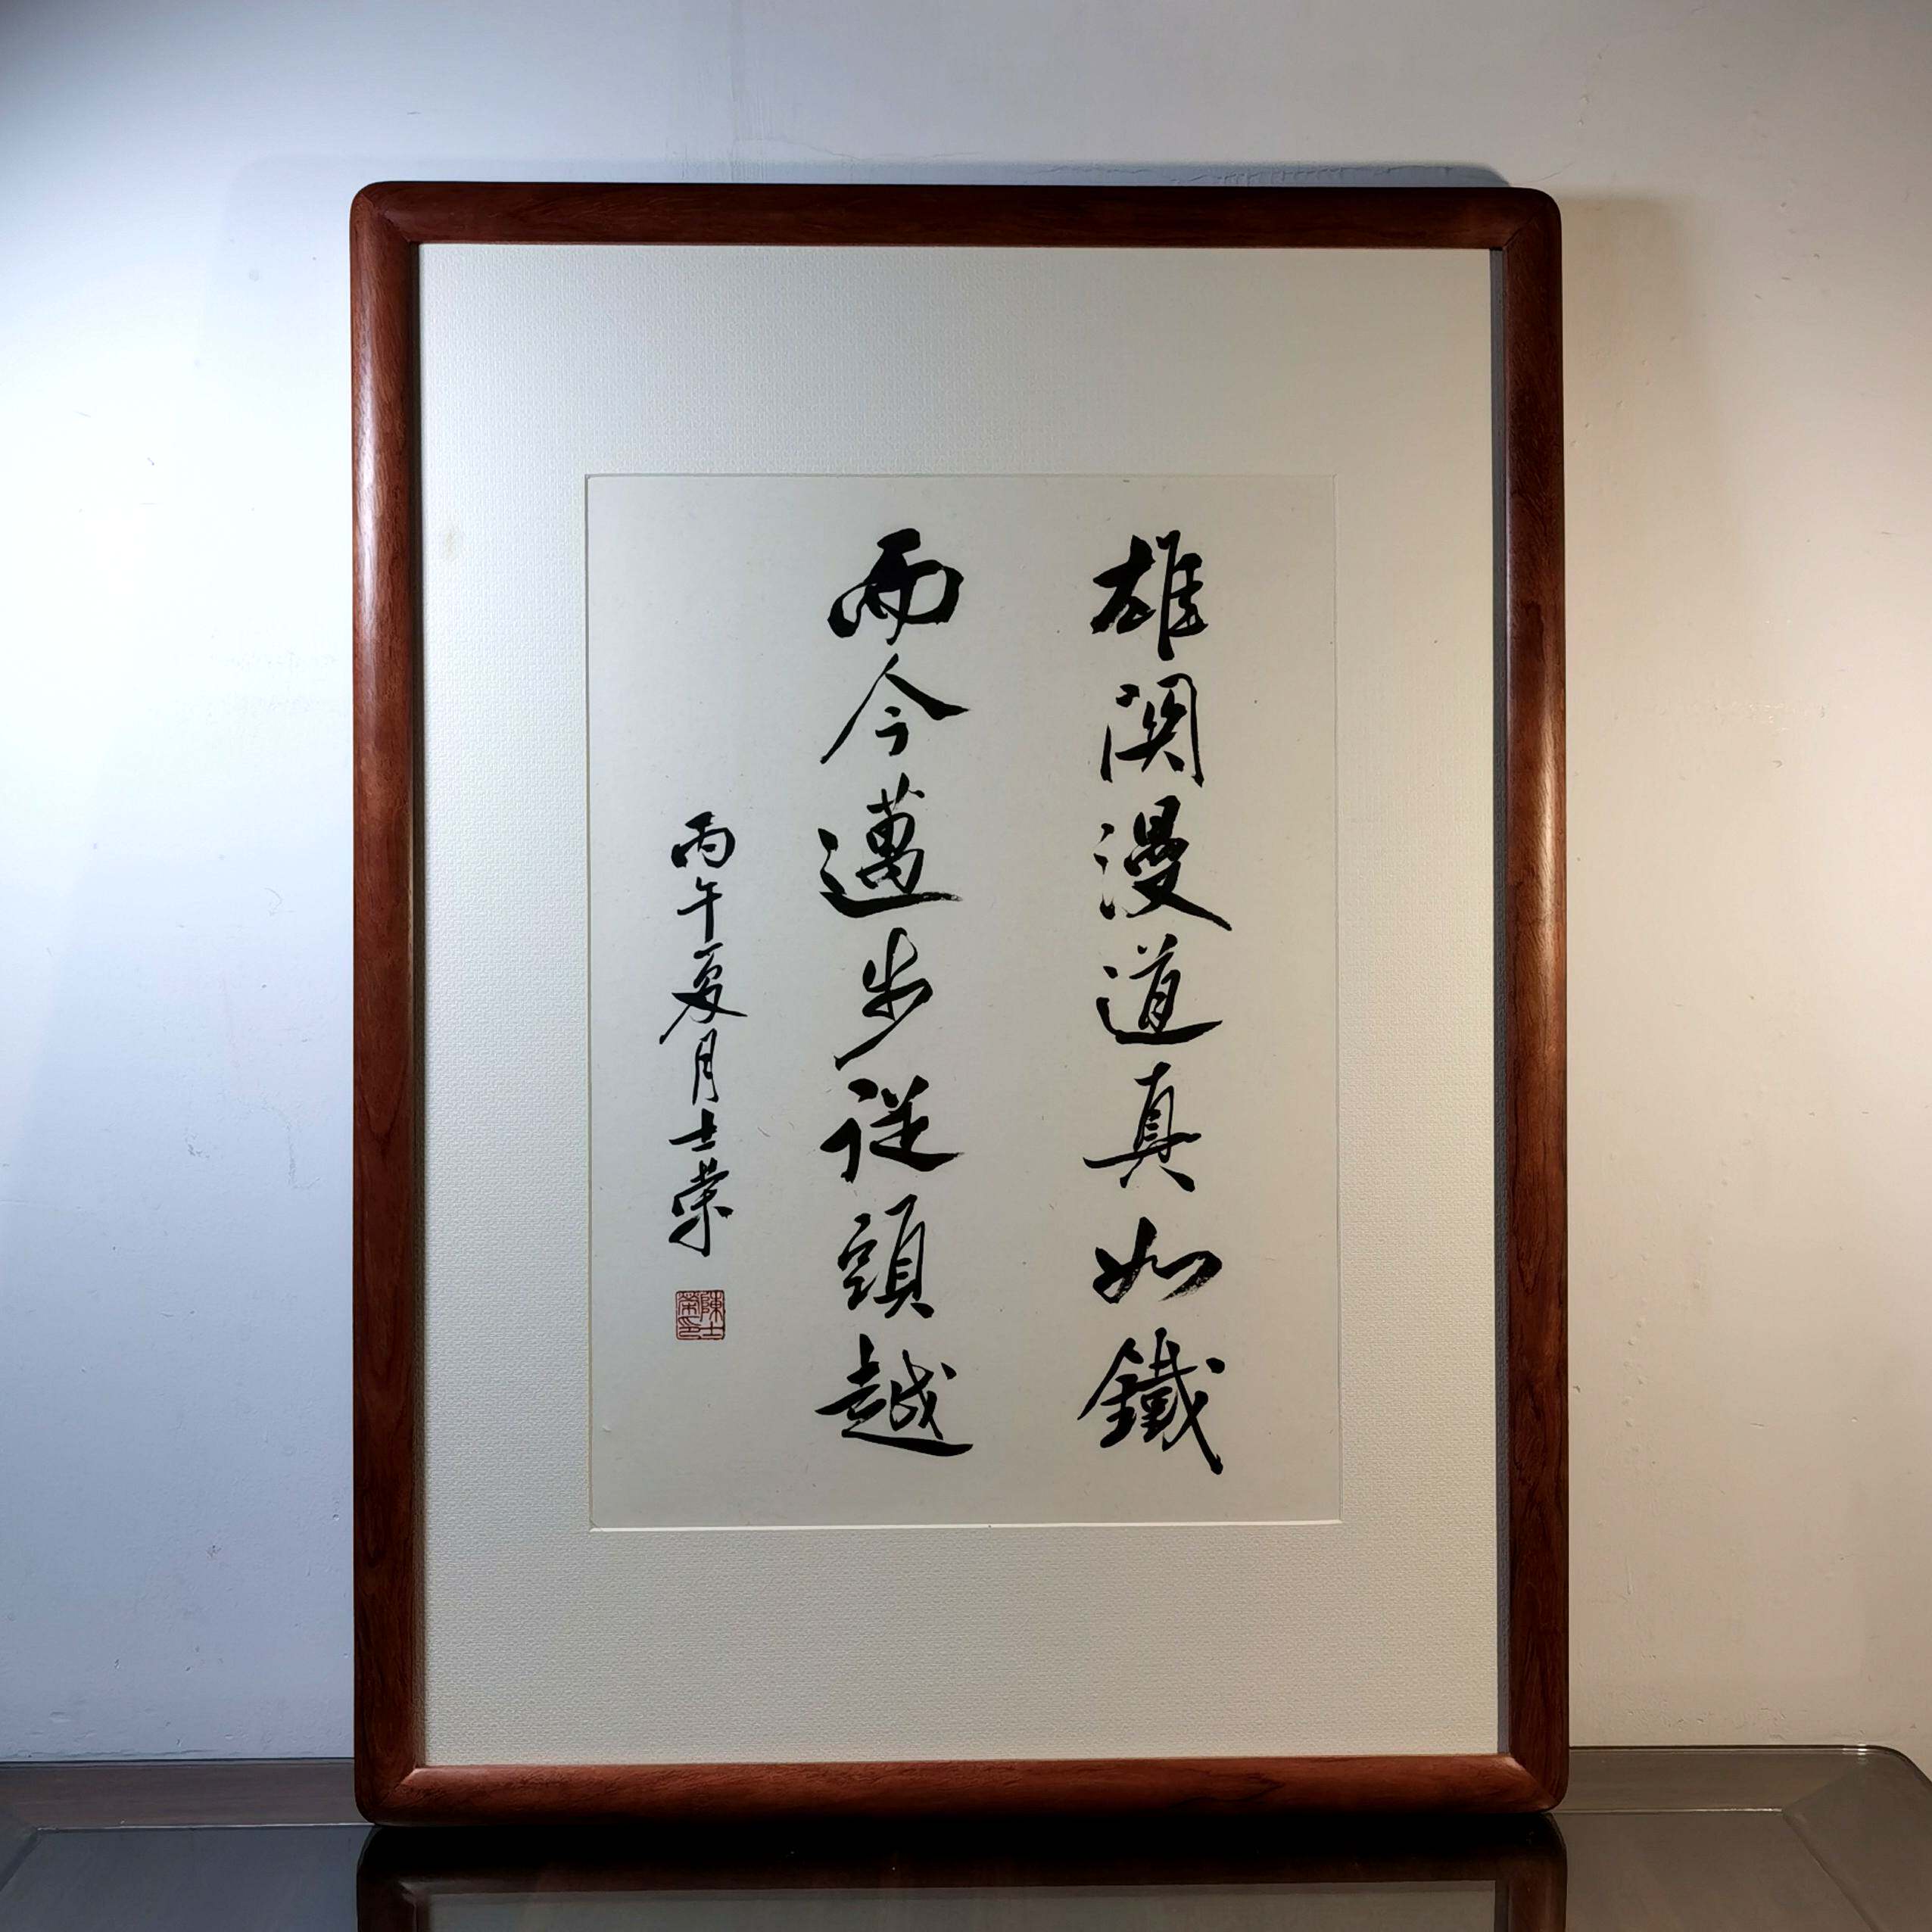 雄関漫道真如鐵
而今邁步從頭越
丙午夏月士榮
陳士榮印